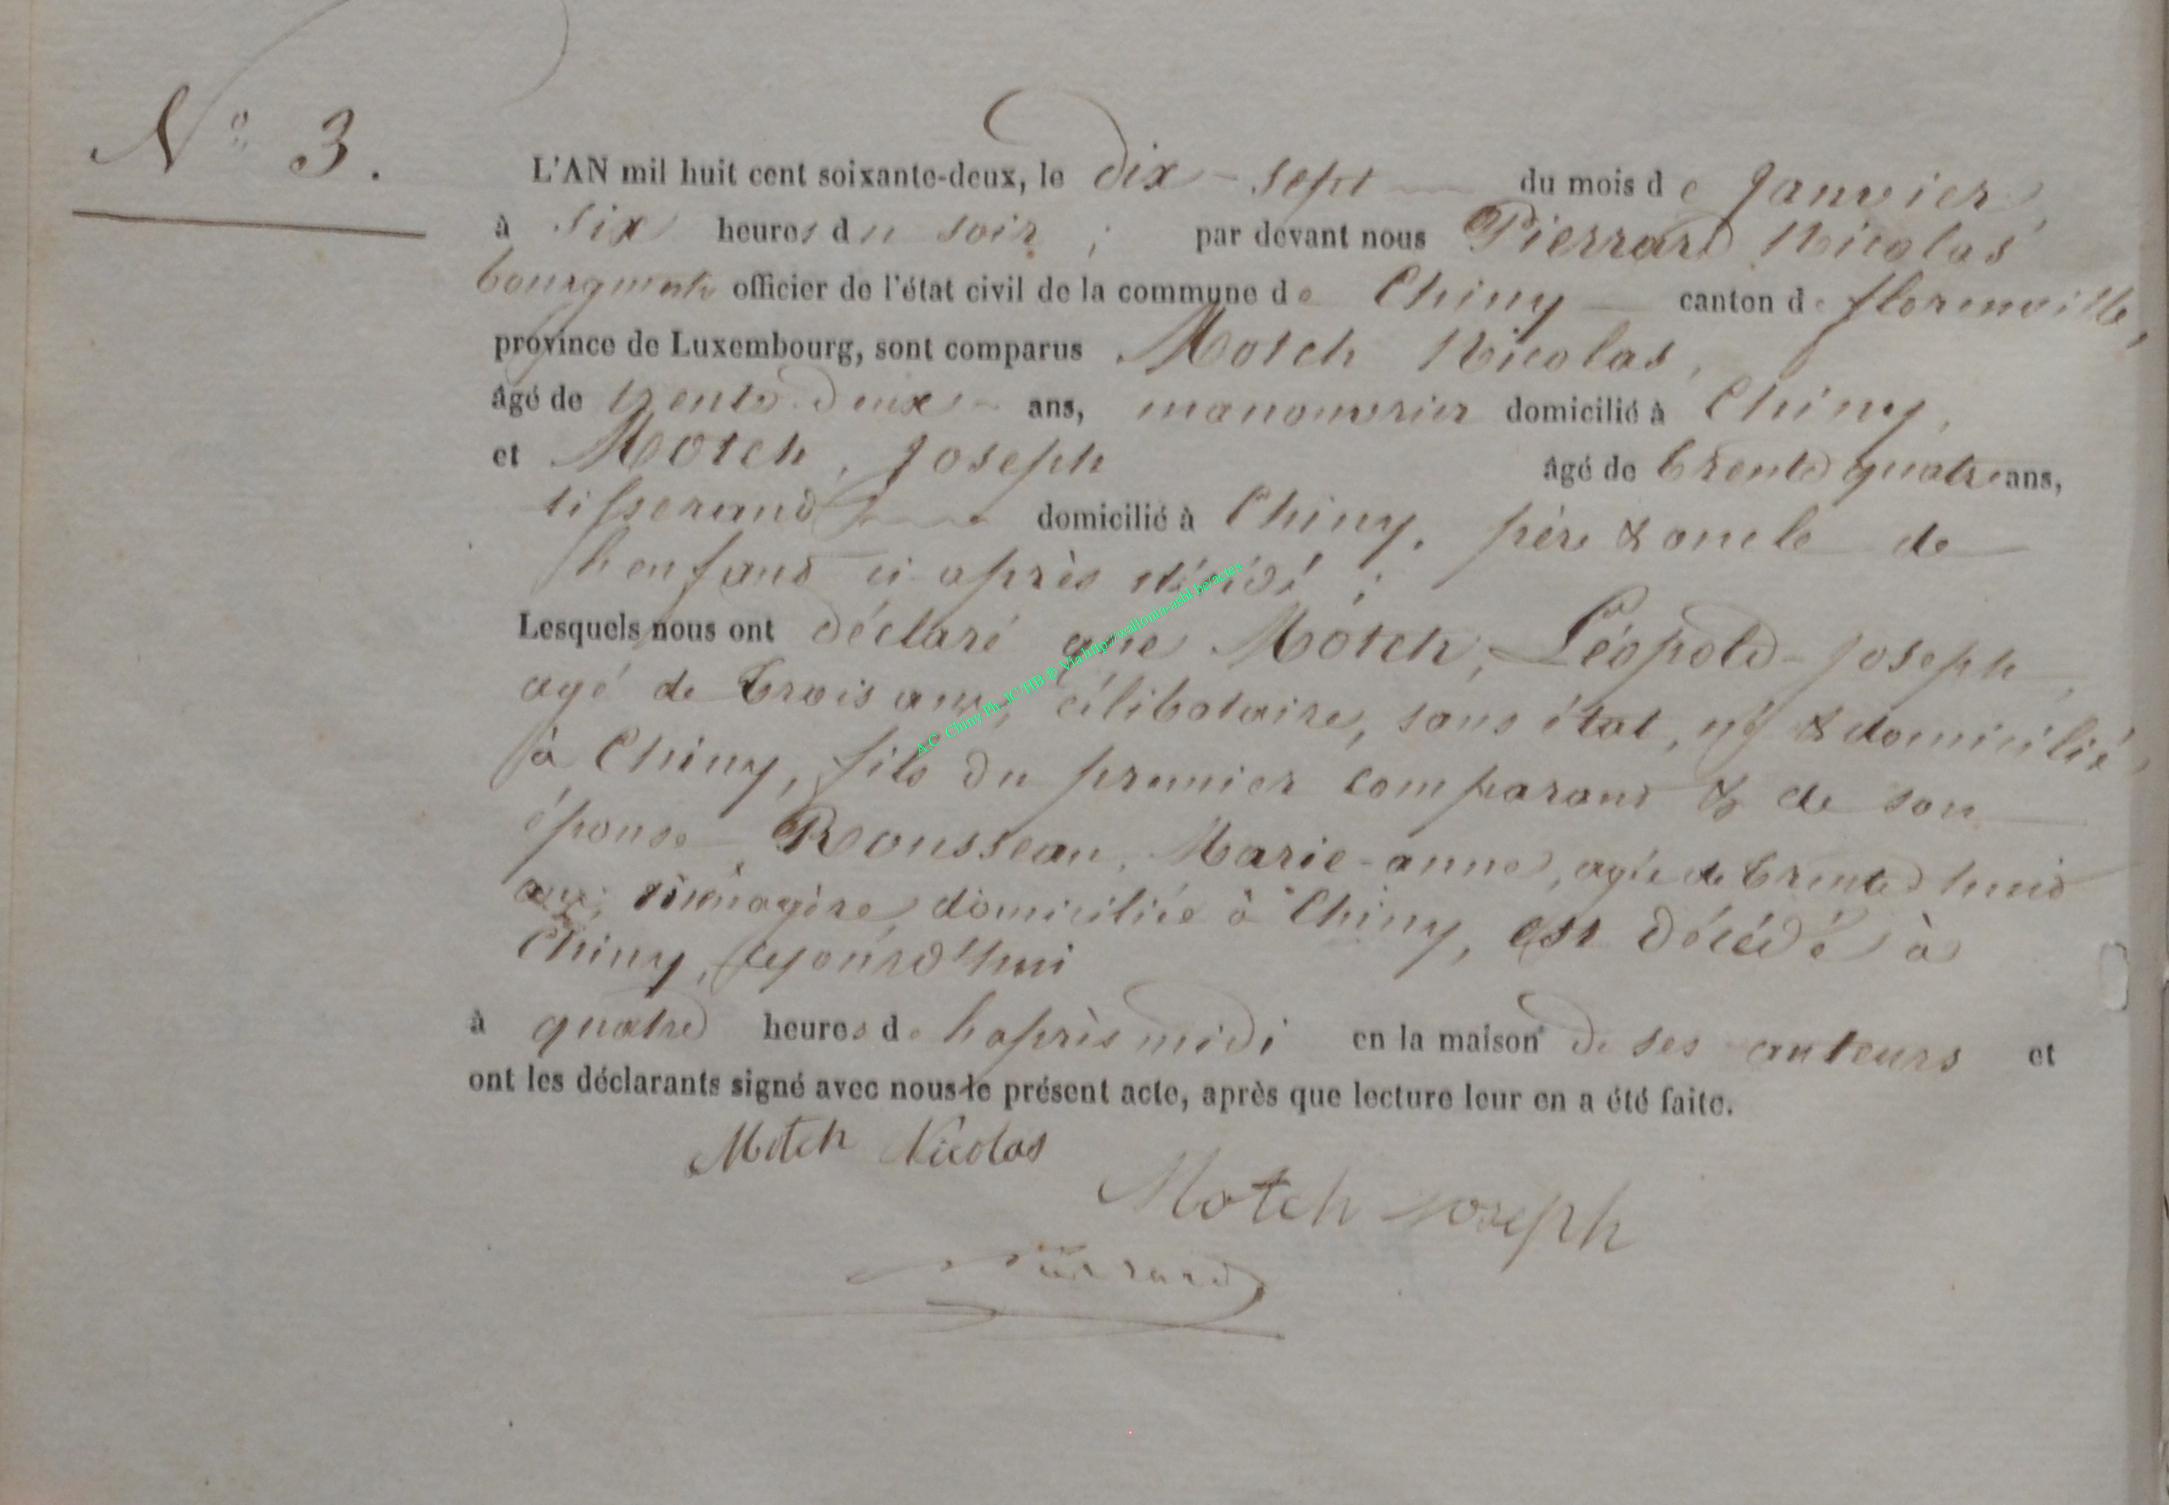 N° 3.
L'AN mil huit cent soixante-deux, le dix-sept du mois de Janvier,
à six heures du soir ; par devant nous Pierrard Nicolas
bourgmestre officier de l'état civil de la commune de Chiny canton de florenville,
province de Luxembourg, sont comparus Motch Nicolas,
âgé de trente deux ans, manouvrier domicilié à Chiny,
et Motch, Joseph âgé de trente quatre ans,
tisserand domicilié à Chiny. père & oncle de
l'enfant ci après décédé ;
Lesquels nous ont déclaré que Motch, Léopold-Joseph,
agé de trois ans, célibataire, sans état, né & domicilié
à Chiny, fils du premier comparant & de son
épouse Rousseau, Marie-anne, agée de trente huit
ans, ménagère, domiciliée à Chiny, est décédé à
Chiny, aujourd'hui
à quatre heures de l'après midi en la maison de ses auteurs et
ont les déclarants signé avec nous le présent acte, après que lecture leur en a été faite.
Motch Nicolas
Motch Joseph
Pierrard